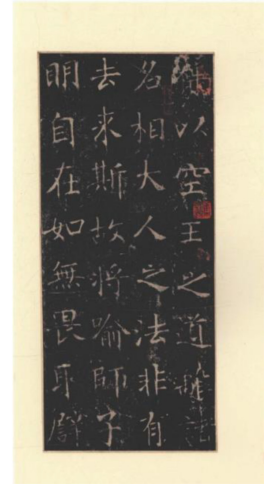 竊以空王之道離諸
名相大人之法非有
去來斯故將喻師子
明自在如無畏取譬